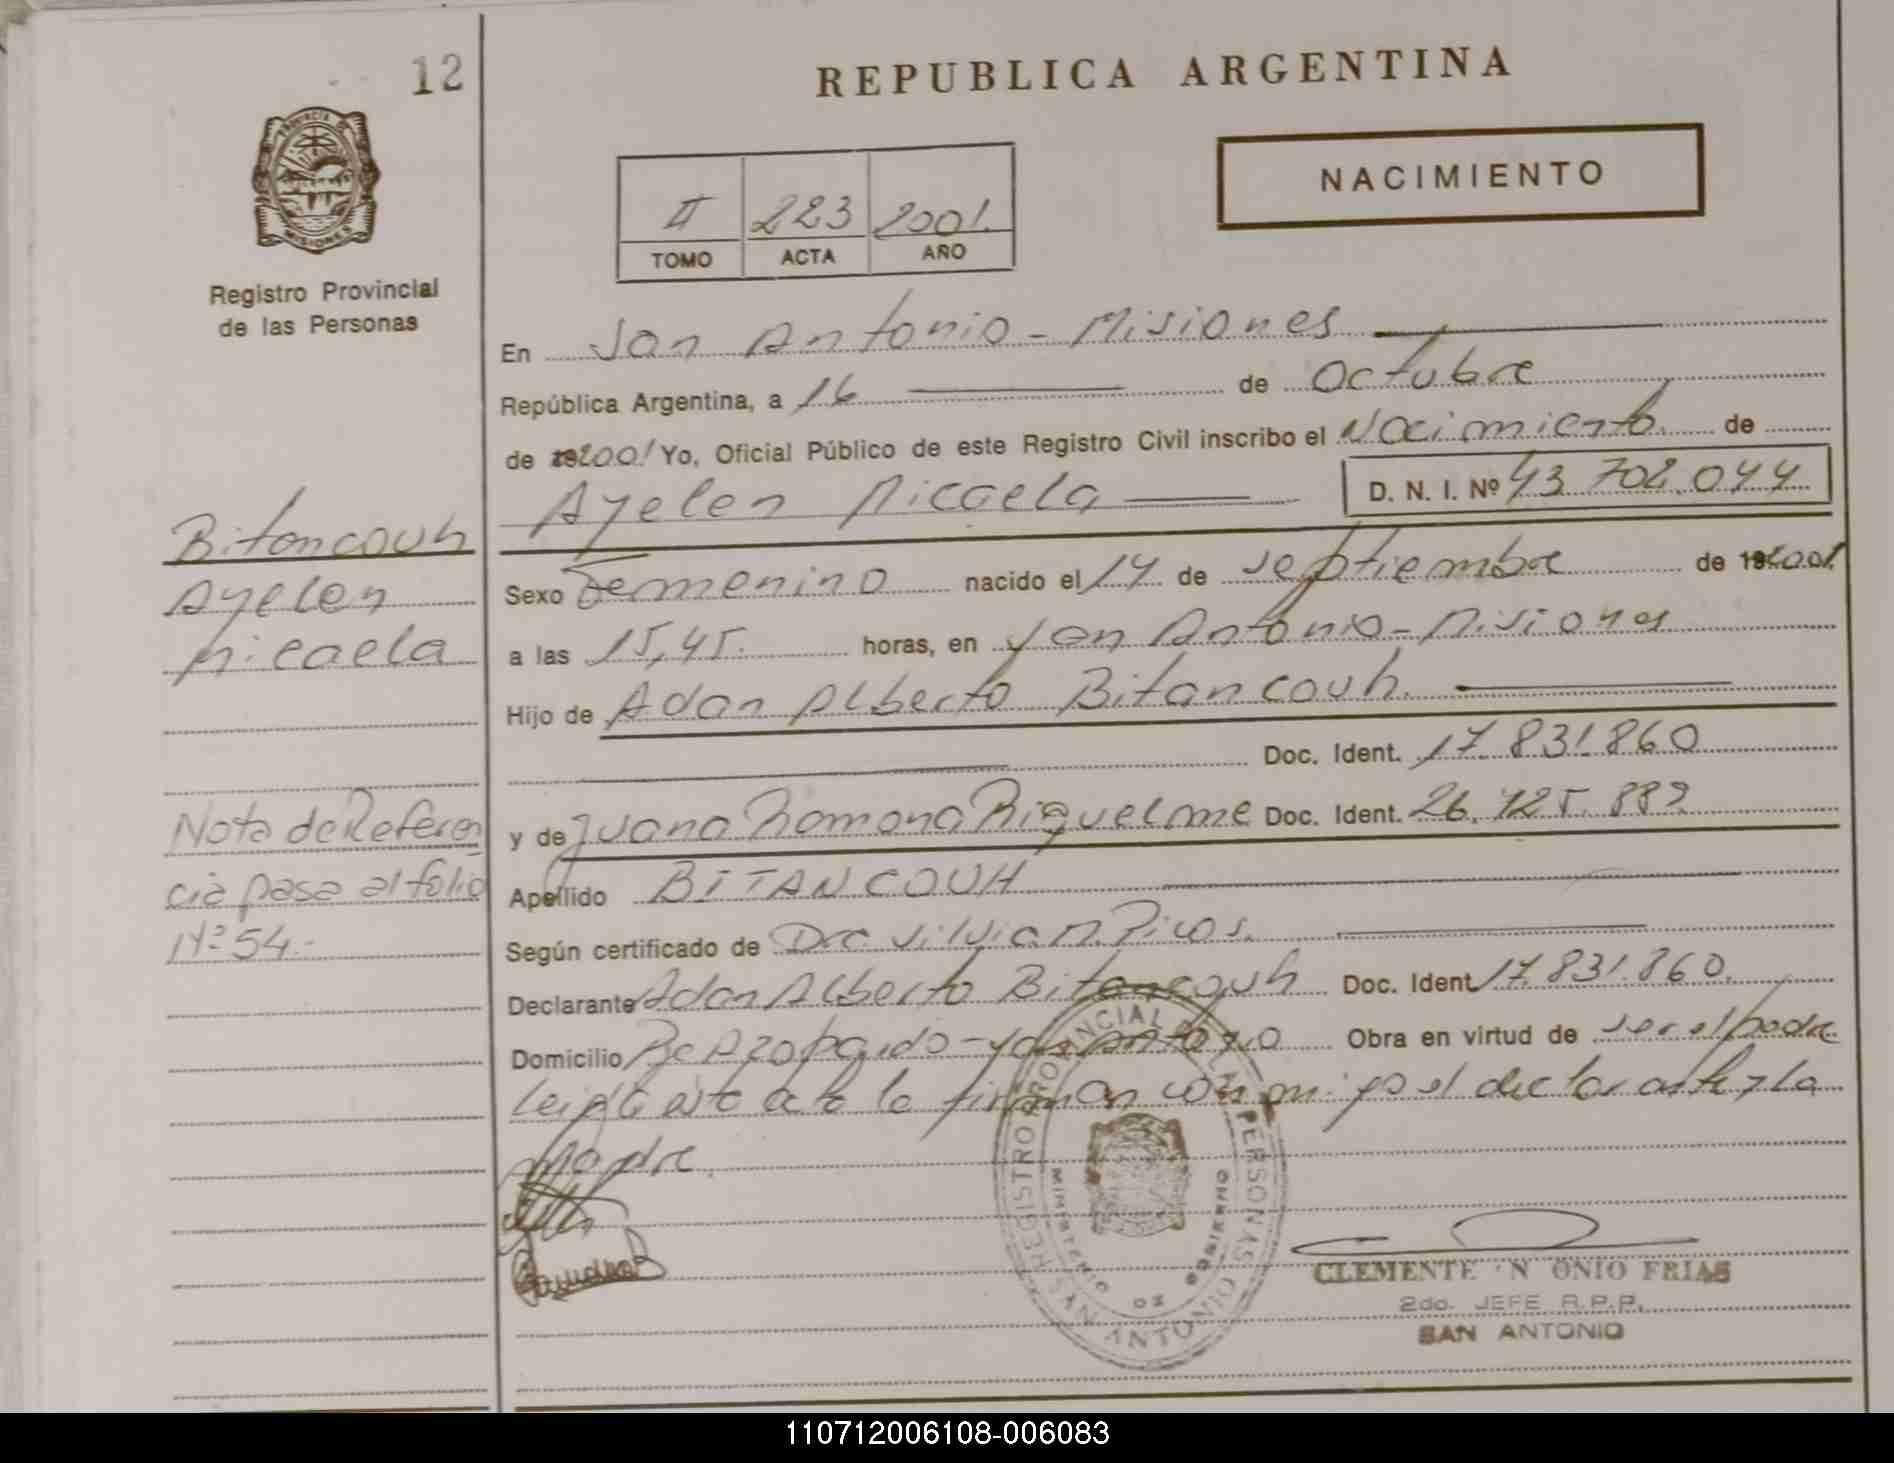 12
REPUBLICA ARGENTINA
NACIMIENTO
II 223 2001.
TOMO ACTA AÑO
PROVINCIA DE MISIONES
Registro Provincial
de las Personas
En San Antonio - Misiones
República Argentina, a 16 de Octubre
de 192001 Yo, Oficial Público de este Registro Civil inscribo el Nacimiento de
Ayelen Micaela D. N. I. Nº 43.702.044
Bitancouh
Ayelen
Micaela
Sexo Femenino nacido el 14 de Septiembre de 192001.
a las 15,45. horas, en San Antonio - Misiones
Hijo de Adan Alberto Bitancouh.
Doc. Ident. 17.831.860
y de Juana Ramona Riquelme Doc. Ident. 26.725.889
Apellido BITANCOUH
Según certificado de Dra. Silvia M. Picos.
Declarante Adan Alberto Bitancouh Doc. Ident 17.831.860.
Domicilio Bº Azopardo - San Antonio Obra en virtud de ser el padre
leida esta acta la firman conmigo el declarante y la
Madre.
Nota de Referen
cia pasa al folio
Nº 54.-
REGISTRO PROVINCIAL DE LAS PERSONAS
MINISTERIO DE GOBIERNO
SAN ANTONIO
CLEMENTE N ONIO FRIAS
2do. JEFE R.P.P.
SAN ANTONIO
110712006108-006083